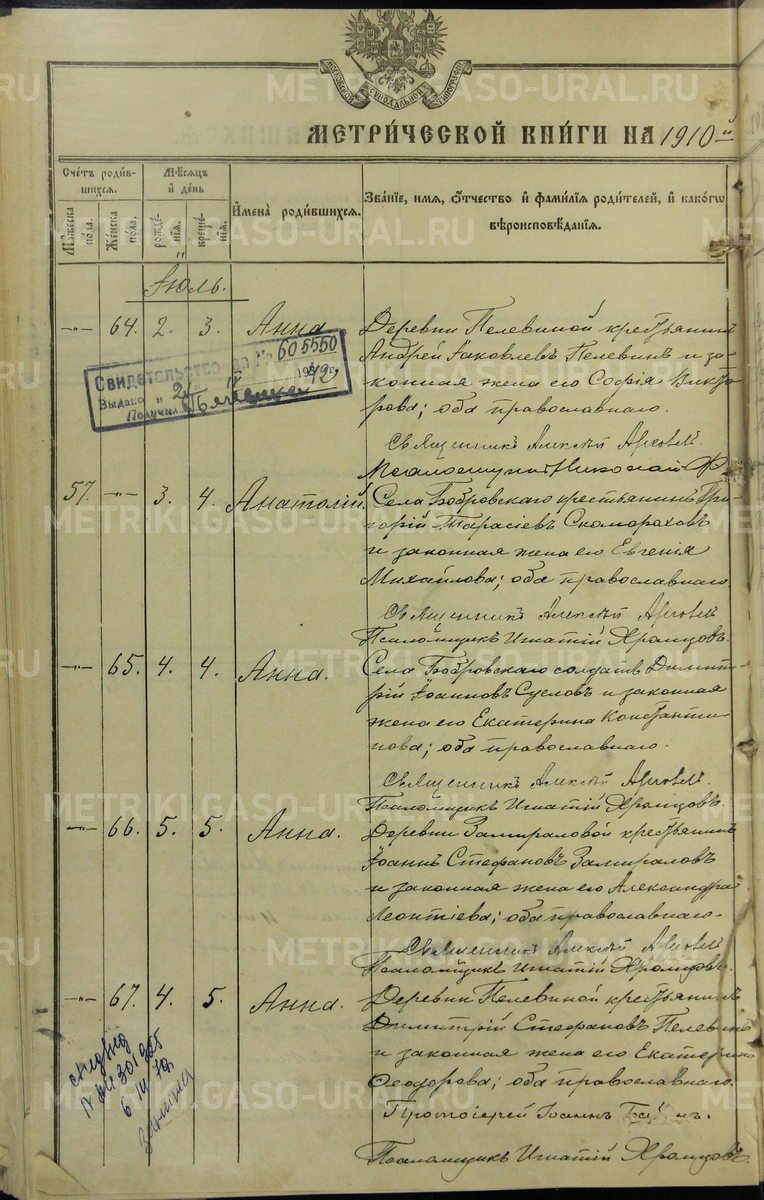 МОСКОВСКОЙ СѴНОДАЛЬНОЙ ТИПОГРАФІИ
МЕТРИ́ЧЕСКОЙ КНИ́ГИ НА 1910 й
Сче́тъ роди́вшихся.
Мꙋ́жеска по́ла.
Же́нска по́ла.
Мѣ́сяцъ и҆ де́нь
рожде́нїѧ.
креще́нїѧ.
И҆мена̀ роди́вшихсѧ.
Зва́нїе, и҆́мѧ, ѻ҆́тчество и҆ фами́лїѧ роди́телей, и҆ како́гѡ вѣроисповѣ́данїѧ.
Іюль.
-"- 64. 2. 3. Анна
Деревни Пелевиной крестьянинъ
Андрей Іаковлевъ Пелевинъ и за-
конная жена его Софія Викто-
рова; оба православнаго.
Священникъ Алексѣй
Свидетельство за № 605550
Выдано и 21/IV 1942 г.
Получил
57. -"- 3. 4. Анатолій
Села Бобровскаго крестьянинъ Гри-
горій Тарасіевъ Скомороховъ
и законная жена его Евгенія
Михайлова; оба православнаго.
Священникъ Алексѣй
Псаломщикъ Игнатій Хромцовъ.
-"- 65. 4. 4. Анна.
Села Бобровскаго солдатъ Димит-
рій Іоанновъ Сусловъ и законная
жена его Екатерина Константи-
нова; оба православнаго.
Священникъ Алексѣй
Псаломщикъ Игнатій Хромцовъ.
-"- 66. 5. 5. Анна.
Деревни Замираловой крестьянинъ
Іоаннъ Стефановъ Замираловъ
и законная жена его Александра
Леонтіева; оба православнаго.
Священникъ Алексѣй
Псаломщикъ Игнатій Хромцовъ.
-"- 67. 4. 5. Анна.
Деревни Пелевиной крестьянинъ
Димитрій Стефановъ Пелевинъ
и законная жена его Екатерина
Феодорова; оба православнаго.
Протоіерей Іоаннъ
Псаломщикъ Игнатій Хромцовъ.
METRIKI.GASO-URAL.RU